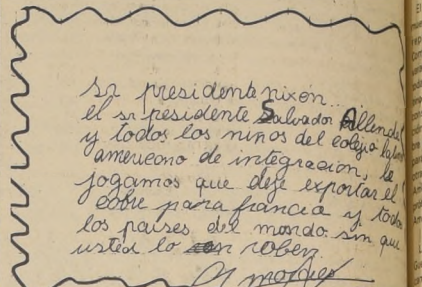 Sr presidente nixon...
el sr presidente Salvador Allende
y todos los niños del colegio latino
americano de integracion, le
jogamos que deje exportar el
cobre para francia y todos
los paises del mondo sin que
usted lo roben